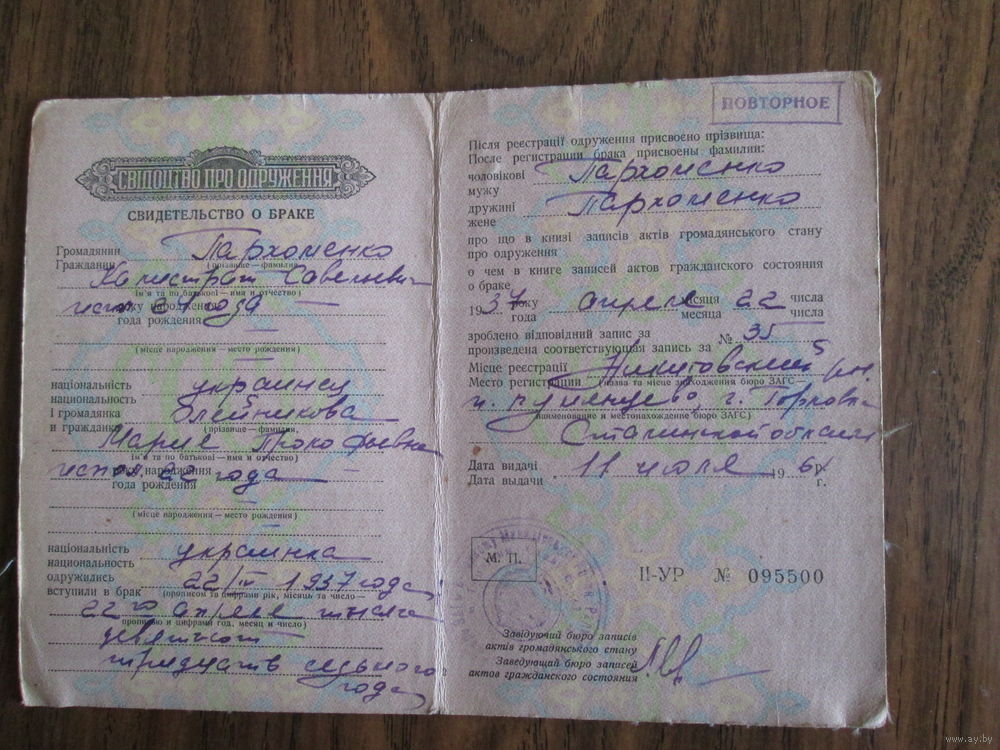 СВІДОЦТВО ПРО ОДРУЖЕННЯ
СВИДЕТЕЛЬСТВО О БРАКЕ
Громадянин Пархоменко
Гражданин (прізвище — фамилия,
ім'я та по батькові — имя и отчество)
року народження
года рождения
(місце народження — место рождения)
національність украинец
национальность
і громадянка Олейникова
и гражданка (прізвище — фамилия,
Мария Прокофьевна
ім'я та по батькові — имя и отчество)
исп. 22 года
року народження
года рождения
(місце народження — место рождения)
національність украинка
национальность
одружились 22/IV 1937 года,
вступили в брак (прописом та цифрами рік, місяць та число —
22го апреля тысяча
прописью и цифрами год, месяц и число)
девятьсот
тридцать седьмого
года
ПОВТОРНОЕ
Після реєстрації одруження присвоєно прізвища:
После регистрации брака присвоены фамилии:
чоловікові Пархоменко
мужу
дружині Пархоменко
жене
про що в книзі записів актів громадянського стану
про одруження
о чем в книге записей актов гражданского состояния
о браке
1937 року апреля місяця 22 числа
года месяца числа
зроблено відповідний запис за
произведена соответствующая запись за № 35
Місце реєстрації Никитовский
Место регистрации (назва та місце знаходження бюро ЗАГС —
г. Горловка
наименование и местонахождение бюро ЗАГС)
Сталинской области
Дата видачі 11 июля 1961 р.
Дата выдачи г.
М. П.
II-УР № 095500
Завідуючий бюро записів
актів громадянського стану
Заведующий бюро записей
актов гражданского состояния
www.ay.by